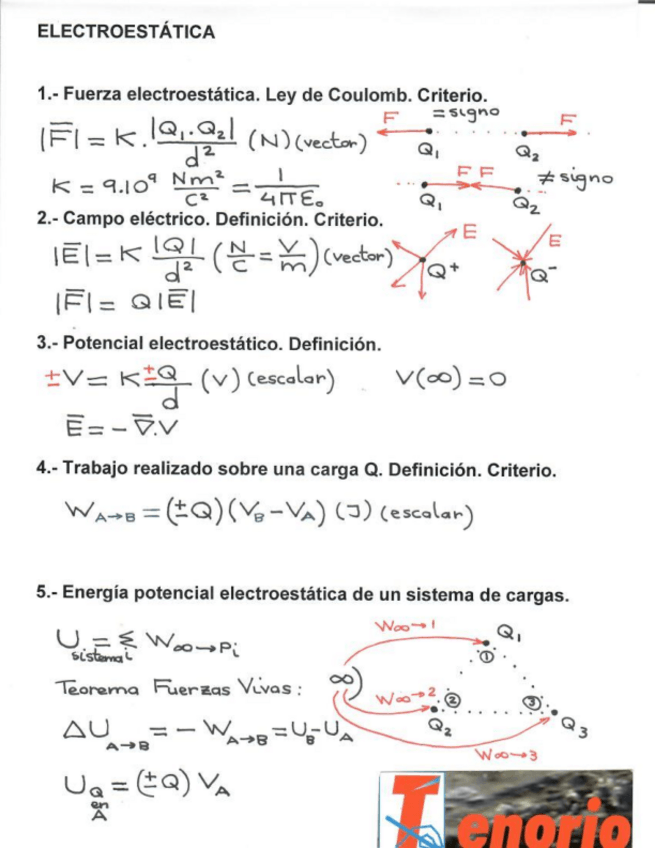 ELECTROESTÁTICA
1.- Fuerza electroestática. Ley de Coulomb. Criterio.
|F̅| = K · |Q₁·Q₂| / d² (N) (vector)
F = signo F
Q₁ Q₂
K = 9·10⁹ Nm²/C² = 1/4πε₀
F F ≠ signo
Q₁ Q₂
2.- Campo eléctrico. Definición. Criterio.
|E̅| = K |Q|/d² (N/C = V/m) (vector)
E Q⁺ E Q⁻
|F̅| = Q|E̅|
3.- Potencial electroestático. Definición.
±V = K ±Q/d (V) (escalar) V(∞) = 0
E̅ = -∇̅.V
4.- Trabajo realizado sobre una carga Q. Definición. Criterio.
W A→B = (±Q)(V_B - V_A) (J) (escalar)
5.- Energía potencial electroestática de un sistema de cargas.
U sistema = Σ i W∞→Pi
W∞→1 Q₁
①
Teorema Fuerzas Vivas:
∞) W∞→2 ② ③
Q₂ Q₃
ΔU A→B = - W A→B = U_B - U_A
W∞→3
U Q en A = (±Q) V_A
Tenorio